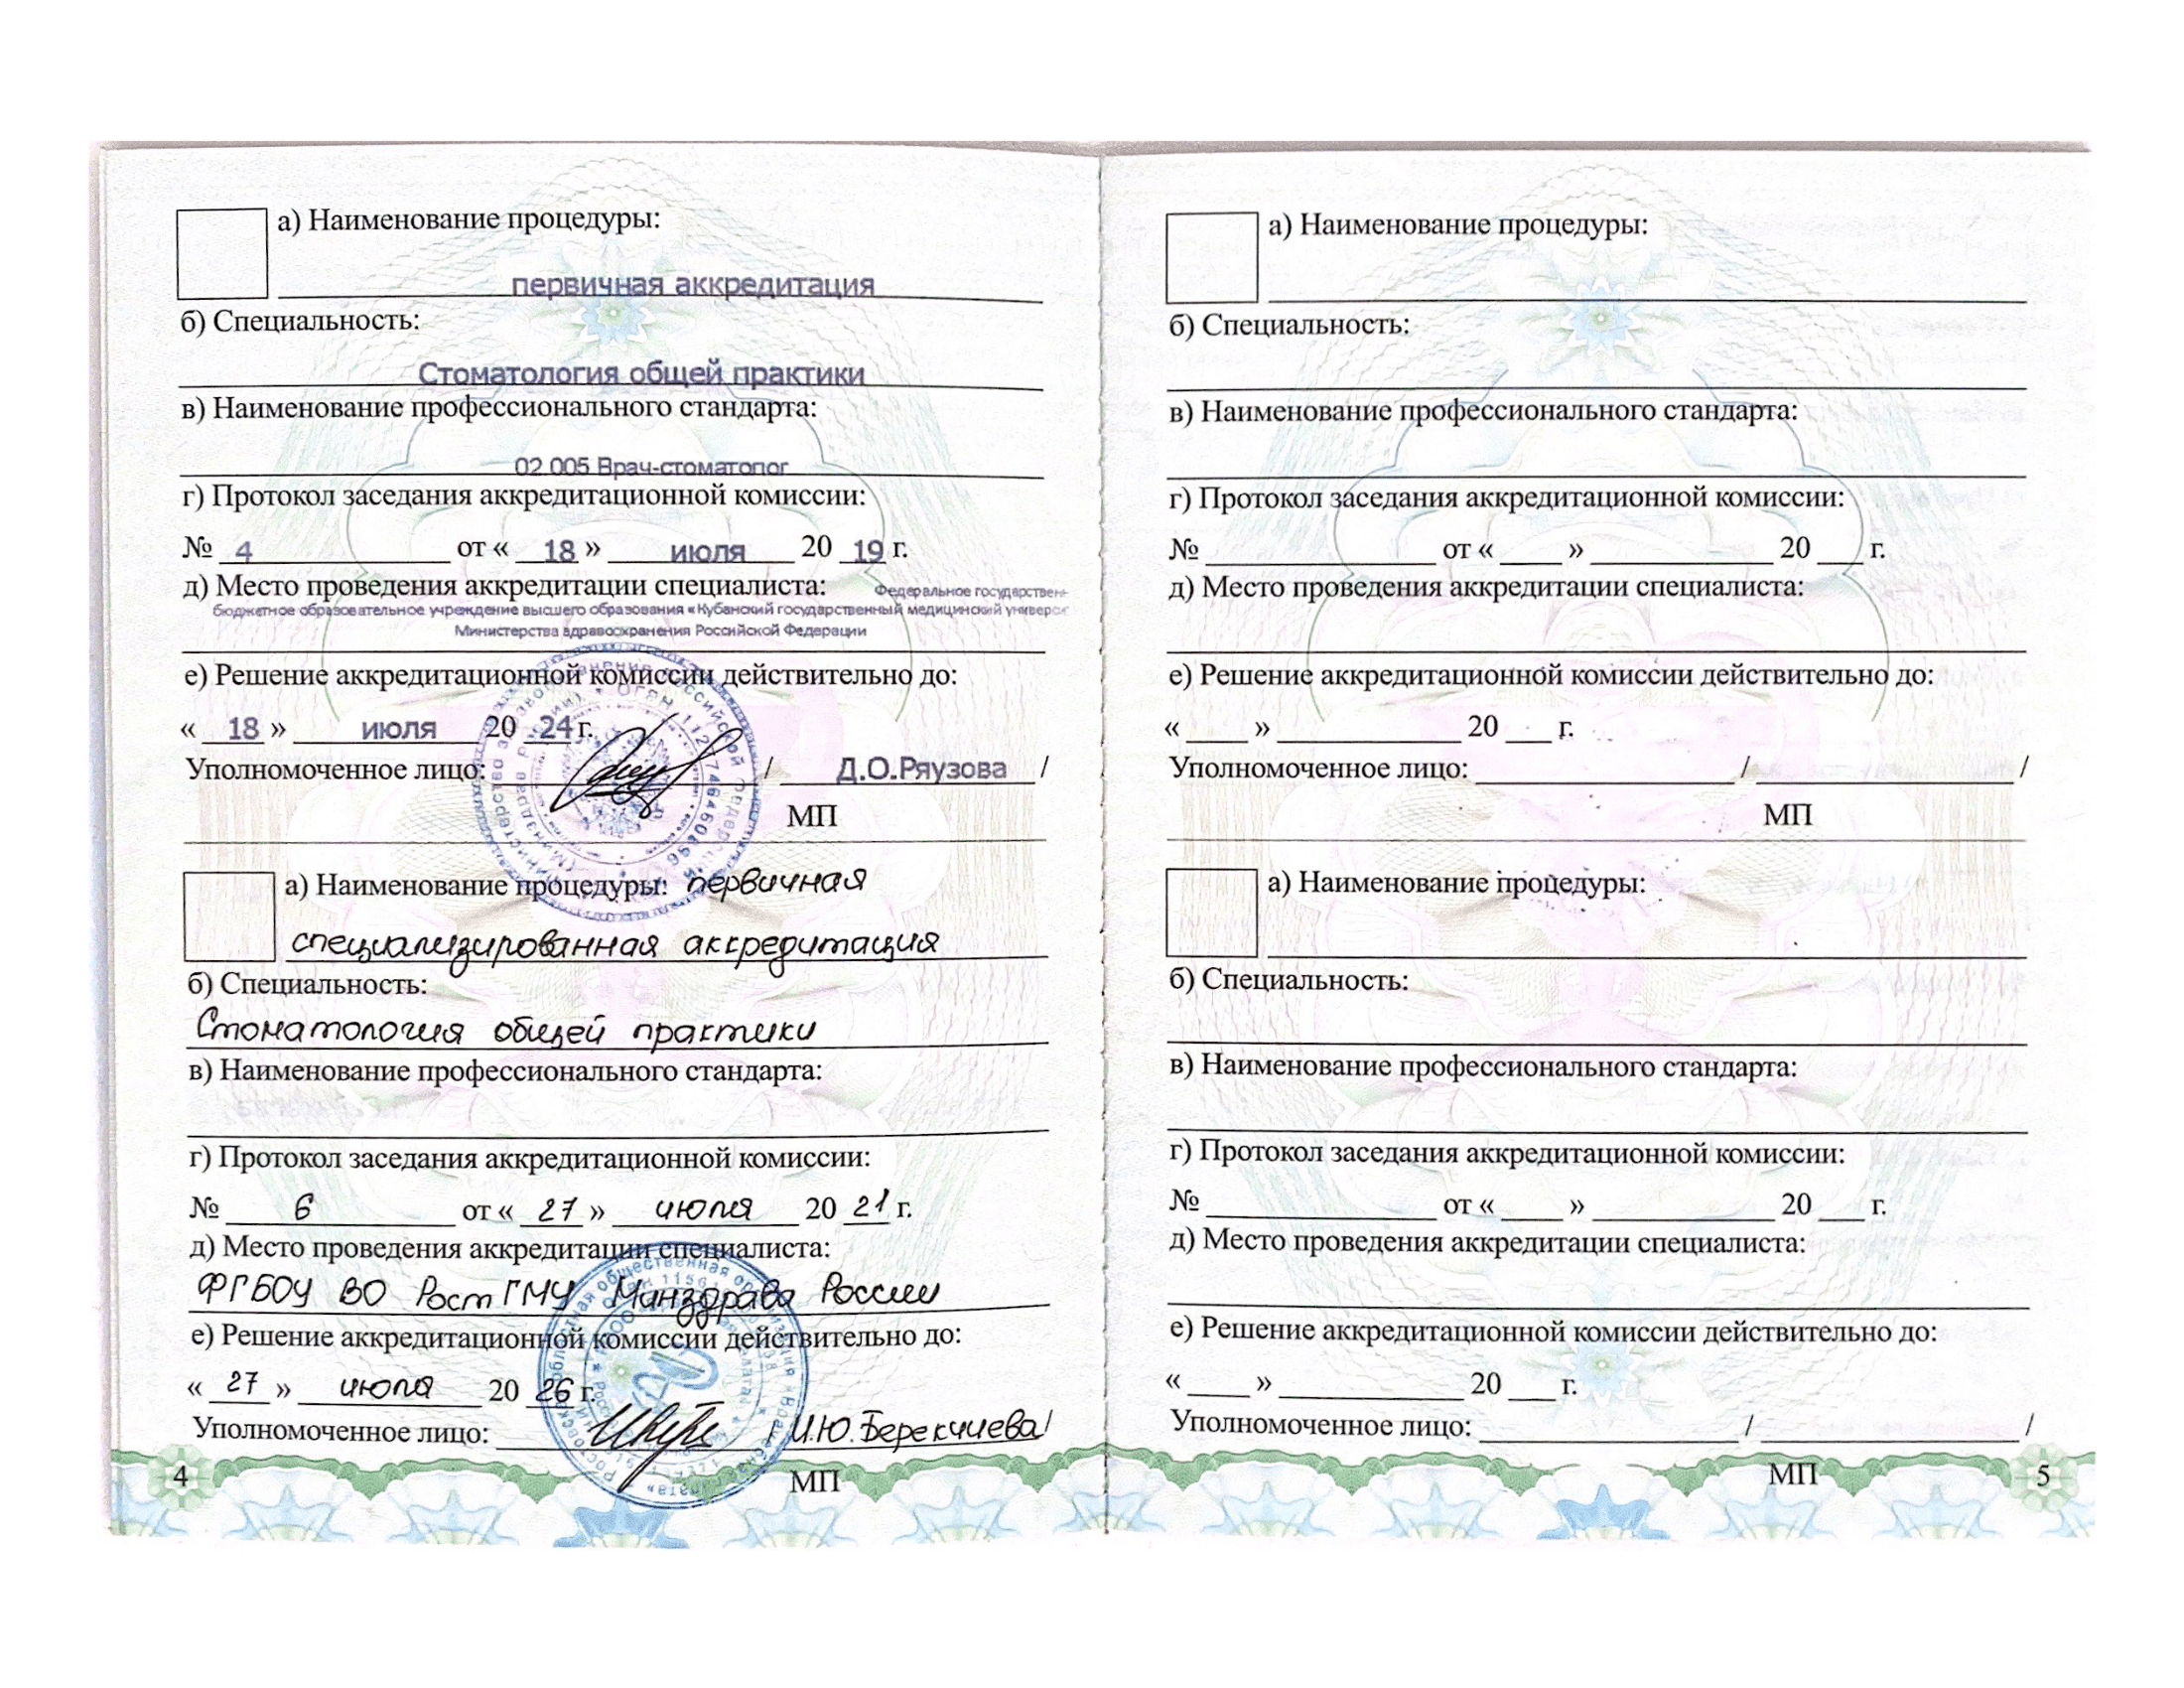 а) Наименование процедуры:
первичная аккредитация
б) Специальность:
Стоматология общей практики
в) Наименование профессионального стандарта:
02.005 Врач-стоматолог
г) Протокол заседания аккредитационной комиссии:
№ 4 от « 18 » июля 20 19 г.
д) Место проведения аккредитации специалиста: Федеральное государствен
бюджетное образовательное учреждение высшего образования «Кубанский государственный медицинский универси
Министерства здравоохранения Российской Федерации
е) Решение аккредитационной комиссии действительно до:
« 18 » июля 20 24 г.
Уполномоченное лицо: / Д.О.Ряузова /
МП
а) Наименование процедуры: первичная
специализированная аккредитация
б) Специальность:
Стоматология общей практики
в) Наименование профессионального стандарта:
г) Протокол заседания аккредитационной комиссии:
№ 6 от « 27 » июля 20 21 г.
д) Место проведения аккредитации специалиста:
ФГБОУ ВО РостГМУ Минздрава России
е) Решение аккредитационной комиссии действительно до:
« 27 » июля 20 26 г.
Уполномоченное лицо: / И.Ю.Берекчиева/
МП
4
а) Наименование процедуры:
б) Специальность:
в) Наименование профессионального стандарта:
г) Протокол заседания аккредитационной комиссии:
№ от « » 20 г.
д) Место проведения аккредитации специалиста:
е) Решение аккредитационной комиссии действительно до:
« » 20 г.
Уполномоченное лицо: / /
МП
а) Наименование процедуры:
б) Специальность:
в) Наименование профессионального стандарта:
г) Протокол заседания аккредитационной комиссии:
№ от « » 20 г.
д) Место проведения аккредитации специалиста:
е) Решение аккредитационной комиссии действительно до:
« » 20 г.
Уполномоченное лицо: / /
МП
5